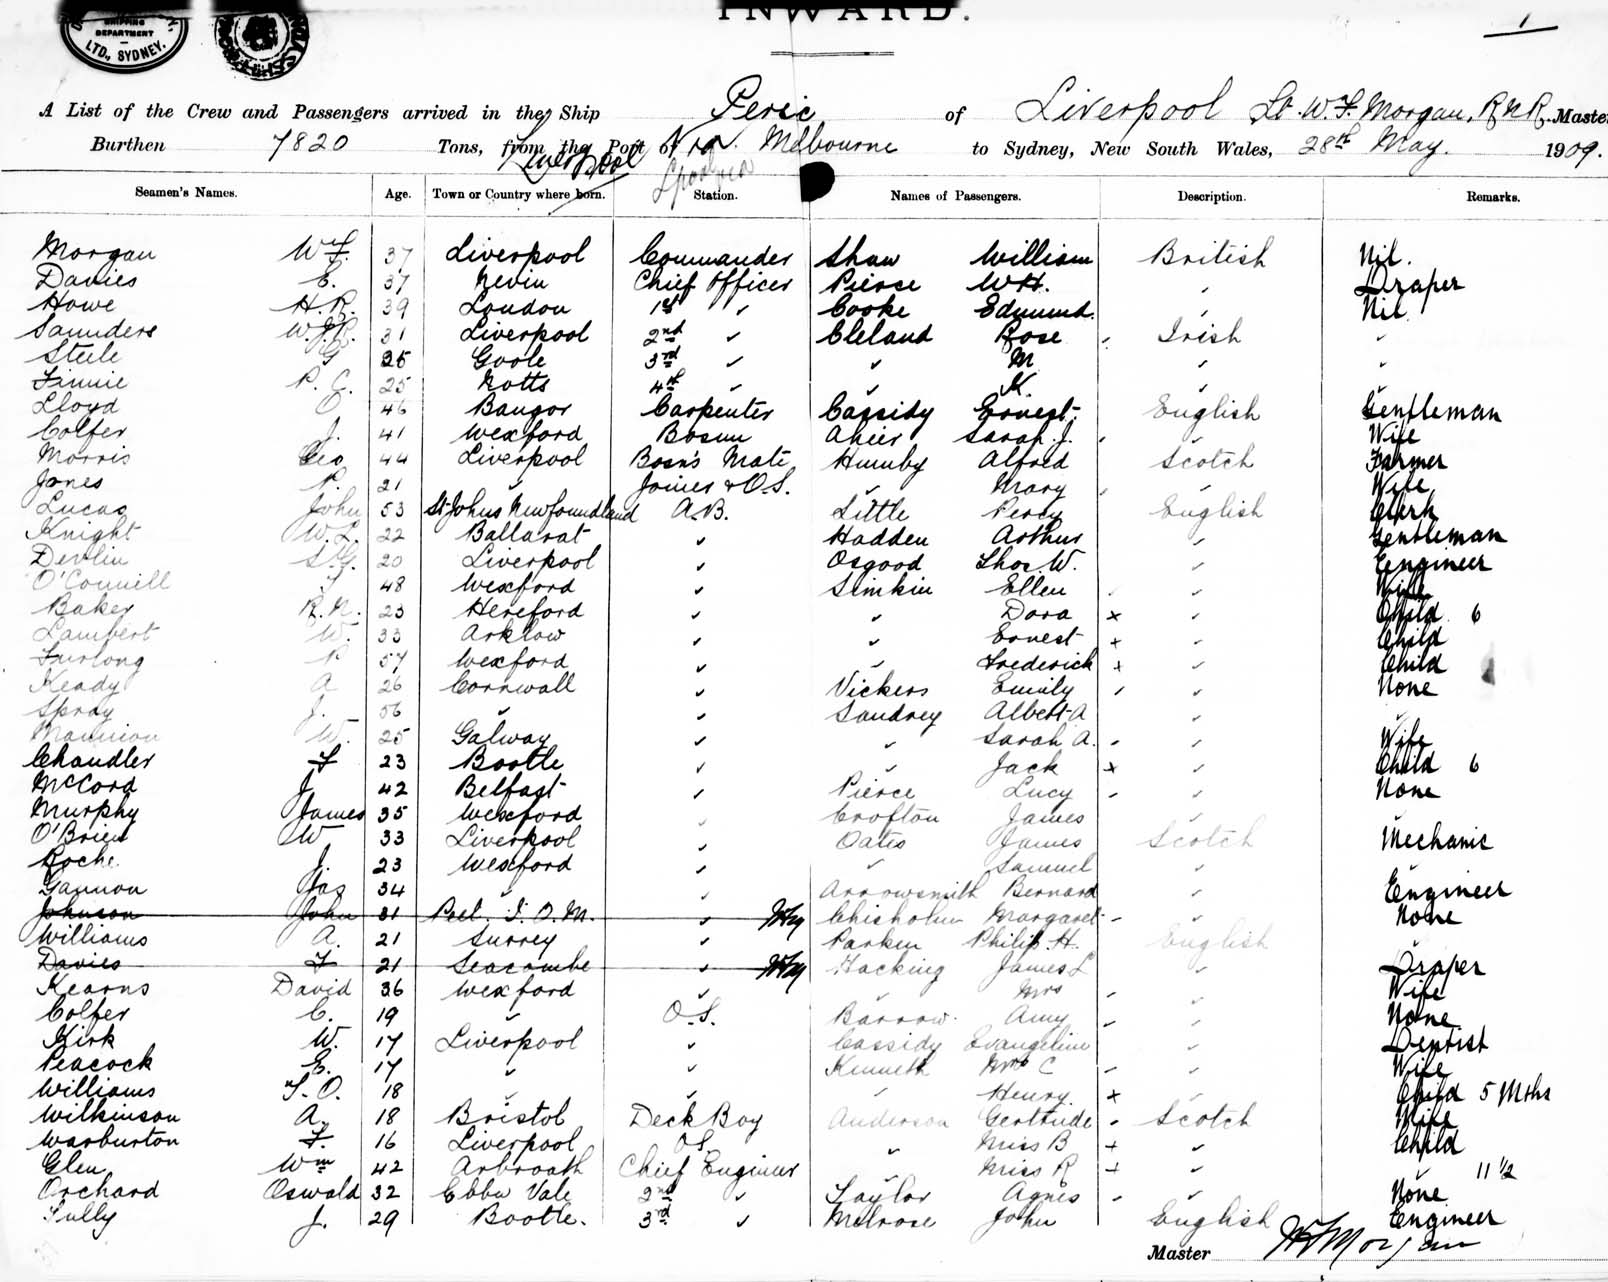 SHIPPING
DEPARTMENT
LTD., SYDNEY.
INWARD.
1
A List of the Crew and Passengers arrived in the Ship Persic of Liverpool Lt. W. F. Morgan, R N R. Master
Burthen 7820 Tons, from the Port of Liverpool via Melbourne to Sydney, New South Wales, 28th May. 1909.
Seamen's Names. Age. Town or Country where born. Station. Names of Passengers. Description. Remarks.
Morgan W F. 37 Liverpool Commander Shaw William British Nil.
Davies E. 37 Nevin Chief Officer Pierse W H. " Draper
Howe H. R. 39 London 1st " Cooke Edmund. " Nil.
Saunders W. J. R. 31 Liverpool 2nd " Cleland Rose Irish "
Steele G 25 Goole 3rd " " M " "
Finnie R. E. 25 Notts 4th " " K " "
Lloyd 46 Bangor Carpenter Cassidy Ernest. English Gentleman
Colfer J. 41 Wexford Bosun Ahier Sarah J. Wife
Morris Geo 44 Liverpool Bosn's Mate Humby Alfred Scotch Farmer
Jones 21 " Joiner & O.S. " Mary " Wife
Lucas John 53 St Johns Newfoundland A.B. Little Percy English Clerk
Knight W. L. 22 Ballarat " Hadden Arthur " Gentleman
Devlin S. G. 20 Liverpool " Osgood Thos. W. " Engineer
O'Connell J 48 Wexford " Simkin Ellen " Wife
Baker R. N. 23 Hereford " " Dora x " Child 6
Lambert W. 33 Arklow " " Ernest + " Child
Furlong P 57 Wexford " " Frederick + " Child
Keady A 26 Cornwall " Vickers Emily " None
Spray J. 56 " " Sandrey Albert A " "
Mannion W. 25 Galway " " Sarah A. " Wife
Chandler F 23 Bootle " " Jack x " Child 6
McCord J 42 Belfast " Pierce Lucy " None
Murphy James 35 Wexford " Crofton James " "
O'Brien W 33 Liverpool " Oates James Scotch Mechanic
Roche J. 23 Wexford " " Samuel " "
Gannon Jas 34 " " Arrowsmith Bernard " Engineer
Johnson John 31 Peel. I. O. M. " Chisholm Margaret " None
Williams A. 21 Surrey " Parken Philip H. English "
Davies F 21 Seacombe " Hacking James L " Draper
Kearns David 36 Wexford " " Mrs " Wife
Colfer C. 19 " O.S. Barrow. Amy " None
Kirk W. 17 Liverpool " Cassidy Evangeline " Dentist
Peacock E. 17 " " Kenneth Mrs C " Wife
Williams T. O. 18 " " " Henry x " Child 5 Mths
Wilkinson A. 18 Bristol Deck Boy Anderson Gertrude Scotch Wife
Warburton F. 16 Liverpool O.S. " Miss B + " Child
Glen Wm 42 Arbroath Chief Engineer " Miss R + " " 11 1/2
Orchard Oswald 32 Ebbw Vale 2nd " Taylor Agnes " None
Tully J. 29 Bootle. 3rd " Melrose John English Engineer
Master W F Morgan